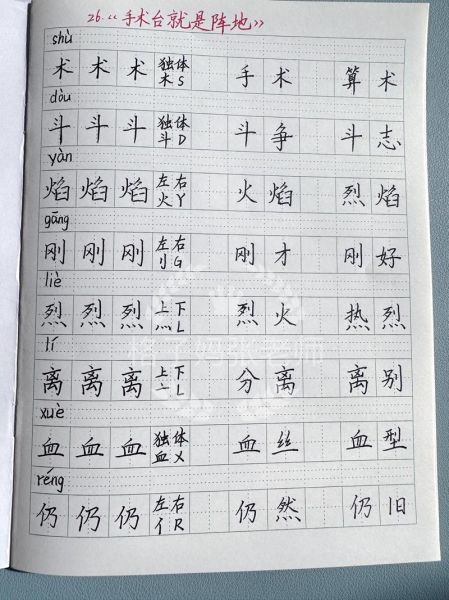 26.《手术台就是阵地》
shù
术 术 术 独体 木 S 手 术 算 术
dòu
斗 斗 斗 独体 斗 D 斗 争 斗 志
yàn
焰 焰 焰 左右 火 Y 火 焰 烈 焰
gāng
刚 刚 刚 左右 刂 G 刚 才 刚 好
liè
烈 烈 烈 上下 灬 L 烈 火 热 烈
lí
离 离 离 上下 亠 L 分 离 离 别
xuè
血 血 血 独体 血 X 血 丝 血 型
réng
仍 仍 仍 左右 亻 R 仍 然 仍 旧